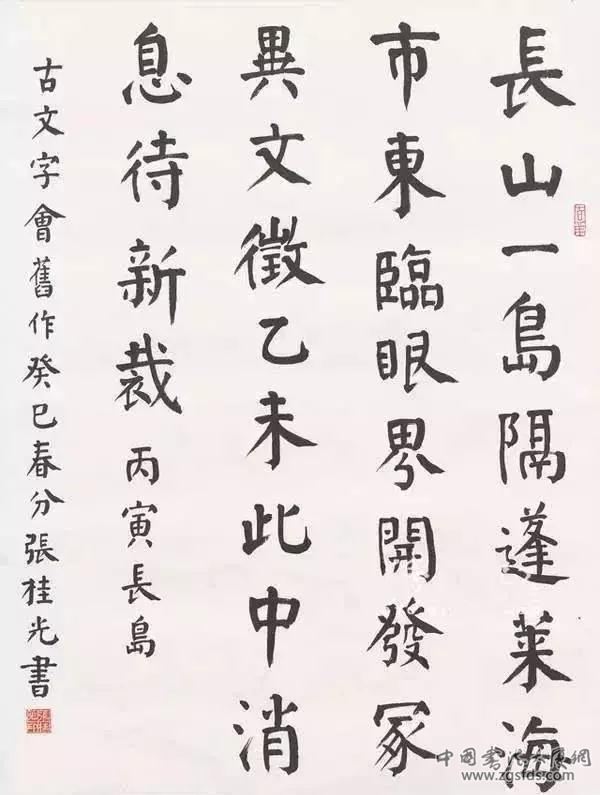 長山一島隔蓬萊海
市東臨眼界開發冢
異文徵乙未此中消
息待新裁 丙寅長島
古文字會舊作癸巳春分張桂光書
中国书法公展網
www.zgsfds.com